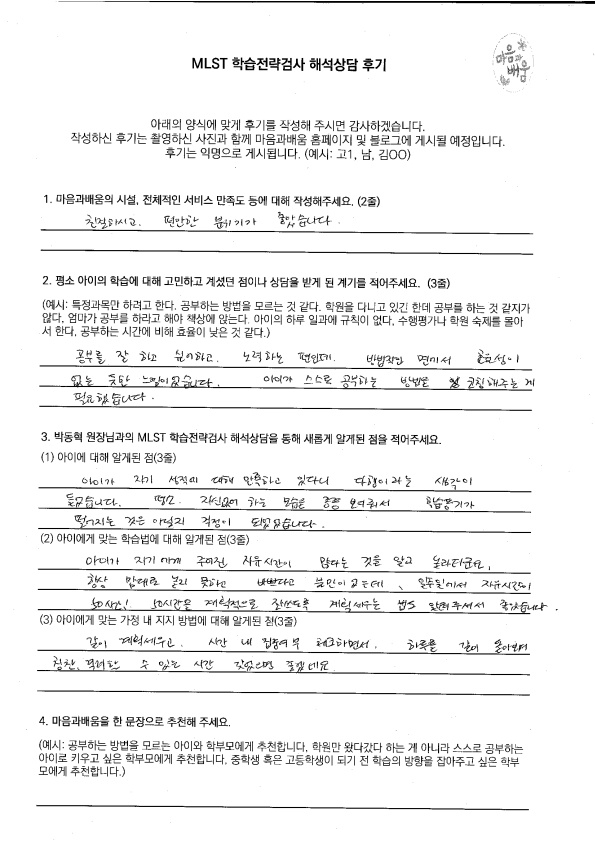 MLST 학습전략검사 해석상담 후기
마음과
배움
아래의 양식에 맞게 후기를 작성해 주시면 감사하겠습니다.
작성하신 후기는 촬영하신 사진과 함께 마음과배움 홈페이지 및 블로그에 게시될 예정입니다.
후기는 익명으로 게시됩니다. (예시: 고1, 남, 김OO)
1. 마음과배움의 시설, 전체적인 서비스 만족도 등에 대해 작성해주세요. (2줄)
친절하시고. 편안한 분위기가 좋았습니다.
2. 평소 아이의 학습에 대해 고민하고 계셨던 점이나 상담을 받게 된 계기를 적어주세요. (3줄)
(예시: 특정과목만 하려고 한다. 공부하는 방법을 모르는 것 같다. 학원을 다니고 있긴 한데 공부를 하는 것 같지가
않다. 엄마가 공부를 하라고 해야 책상에 앉는다. 아이의 하루 일과에 규칙이 없다, 수행평가나 학원 숙제를 몰아
서 한다, 공부하는 시간에 비해 효율이 낮은 것 같다.)
공부를 잘 하고 싶어하고. 노력하는 편인데. 방법적인 면에서 효율성이
없는 듯한 느낌이었습니다. 아이가 스스로 공부하는 방법을 코칭해주는 게
필요했습니다.
3. 박동혁 원장님과의 MLST 학습전략검사 해석상담을 통해 새롭게 알게된 점을 적어주세요.
(1) 아이에 대해 알게된 점(3줄)
아이가 자기 성적에 대해 만족하고 있다니 다행이라는 생각이
들었습니다. 평소 자신없어 하는 모습을 종종 보여줘서 학습동기가
떨어지는 것은 아닐지 걱정이 되었었습니다.
(2) 아이에게 맞는 학습법에 대해 알게된 점(3줄)
아이가 자기에게 주어진 자유시간이 많다는 것을 알고 놀라더군요.
항상 맘대로 놀지 못하고 바쁘다고 불만이었는데, 일주일에서 자유시간이
50시간! 50시간을 계획적으로 잘쓰도록 계획세우는 법도 알려주셔서 좋았습니다.
(3) 아이에게 맞는 가정 내 지지 방법에 대해 알게된 점(3줄)
같이 계획세우고. 시간 내 집중여부 체크하면서. 하루를 같이 돌아보며
칭찬, 격려할 수 있는 시간 갖었으면 좋겠네요.
4. 마음과배움을 한 문장으로 추천해 주세요.
(예시: 공부하는 방법을 모르는 아이와 학부모에게 추천합니다, 학원만 왔다갔다 하는 게 아니라 스스로 공부하는
아이로 키우고 싶은 학부모에게 추천합니다, 중학생 혹은 고등학생이 되기 전 학습의 방향을 잡아주고 싶은 학부
모에게 추천합니다.)